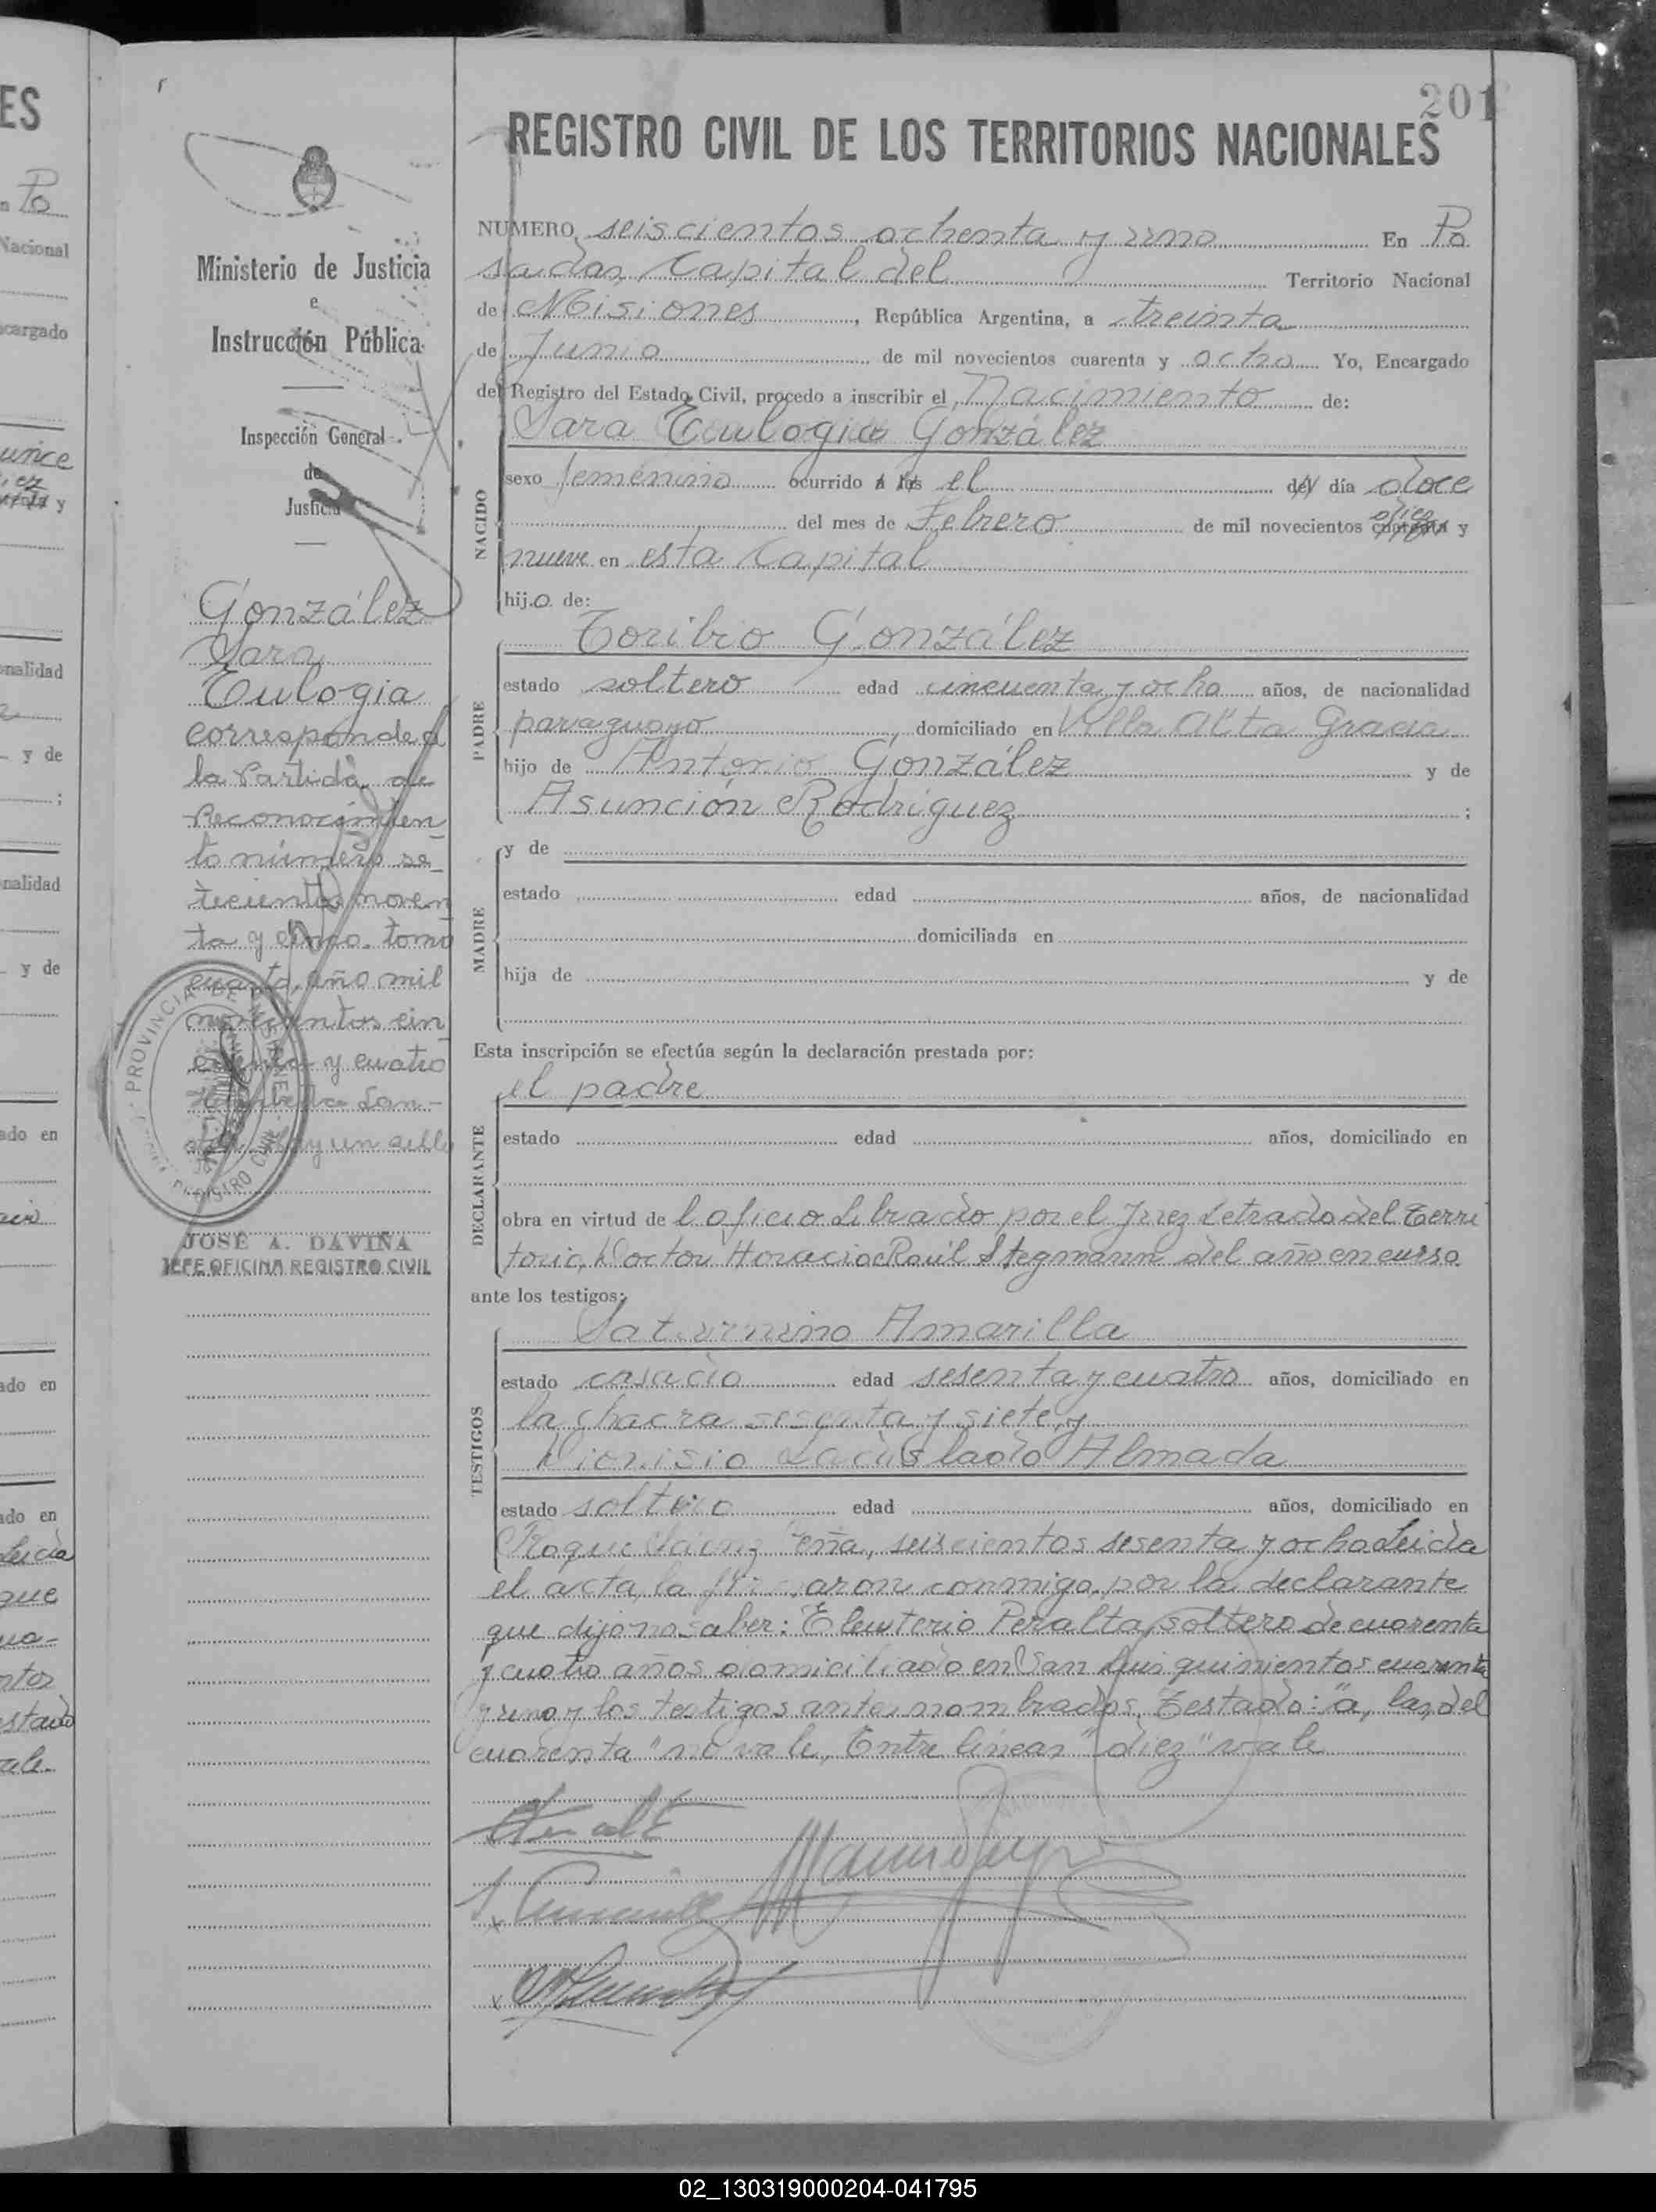 201
REGISTRO CIVIL DE LOS TERRITORIOS NACIONALES
Ministerio de Justicia
e
Instrucción Pública
Inspección General
de
Justicia
González
Sara
Eulogia
corresponde a
la Partida de
Reconocimien
to número se_
tecientos noven
ta y cinco. tomo
cuarto, año mil
novecientos cin
cuenta y cuatro
y un sello
PROVINCIA DE MISIONES
REGISTRO CIVIL
JOSE A. DAVIÑA
JEFE OFICINA REGISTRO CIVIL
NUMERO seiscientos ochenta y uno En Po
sadas, Capital del Territorio Nacional
de Misiones, República Argentina, a treinta
de Junio de mil novecientos cuarenta y ocho Yo, Encargado
del Registro del Estado Civil, procedo a inscribir el Nacimiento de:
Sara Eulogia González
NACIDO
sexo femenino ocurrido a las el del día doce
del mes de Febrero de mil novecientos cuarenta diez y
nueve en esta Capital
hijo de:
Toribio González
PADRE
estado soltero edad cincuenta y ocho años, de nacionalidad
paraguayo, domiciliado en Villa Alta Gracia
hijo de Antonio González y de
Asunción Rodriguez;
MADRE
y de
estado edad años, de nacionalidad
domiciliada en
hija de y de
Esta inscripción se efectúa según la declaración prestada por:
el padre
DECLARANTE
estado edad años, domiciliado en
obra en virtud de l oficio librado por el Juez Letrado del Terri
torio, Doctor Horacio Raúl Stegmann del año en curso
ante los testigos:
Saturnino Amarilla
TESTIGOS
estado casado edad sesenta y cuatro años, domiciliado en
la chacra sesenta y siete, y
Dionisio Almada
estado soltero edad años, domiciliado en
Roque Sáenz Peña, seiscientos sesenta y ocho Leida
el acta, la firmaron conmigo, por la declarante
que dijo no saber: Eleuterio Peralta, soltero de cuarenta
y cuatro años domiciliado en San Luis quinientos cuarenta
y uno y los testigos antes nombrados. Testado: "a, las, del
cuarenta" no vale, Entre lineas "diez" vale
02_130319000204-041795